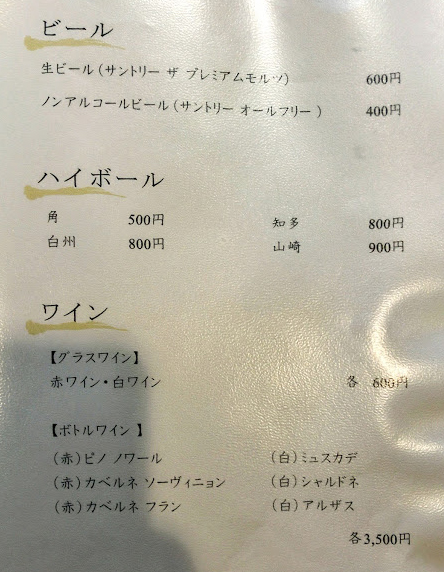 ビール
生ビール(サントリー ザ プレミアムモルツ) 600円
ノンアルコールビール(サントリー オールフリー ) 400円
ハイボール
角 500円 知多 800円
白州 800円 山崎 900円
ワイン
【グラスワイン】
赤ワイン・白ワイン 各 600円
【ボトルワイン 】
(赤)ピノ ノワール (白)ミュスカデ
(赤)カベルネ ソーヴィニョン (白)シャルドネ
(赤)カベルネ フラン (白)アルザス
各3,500円